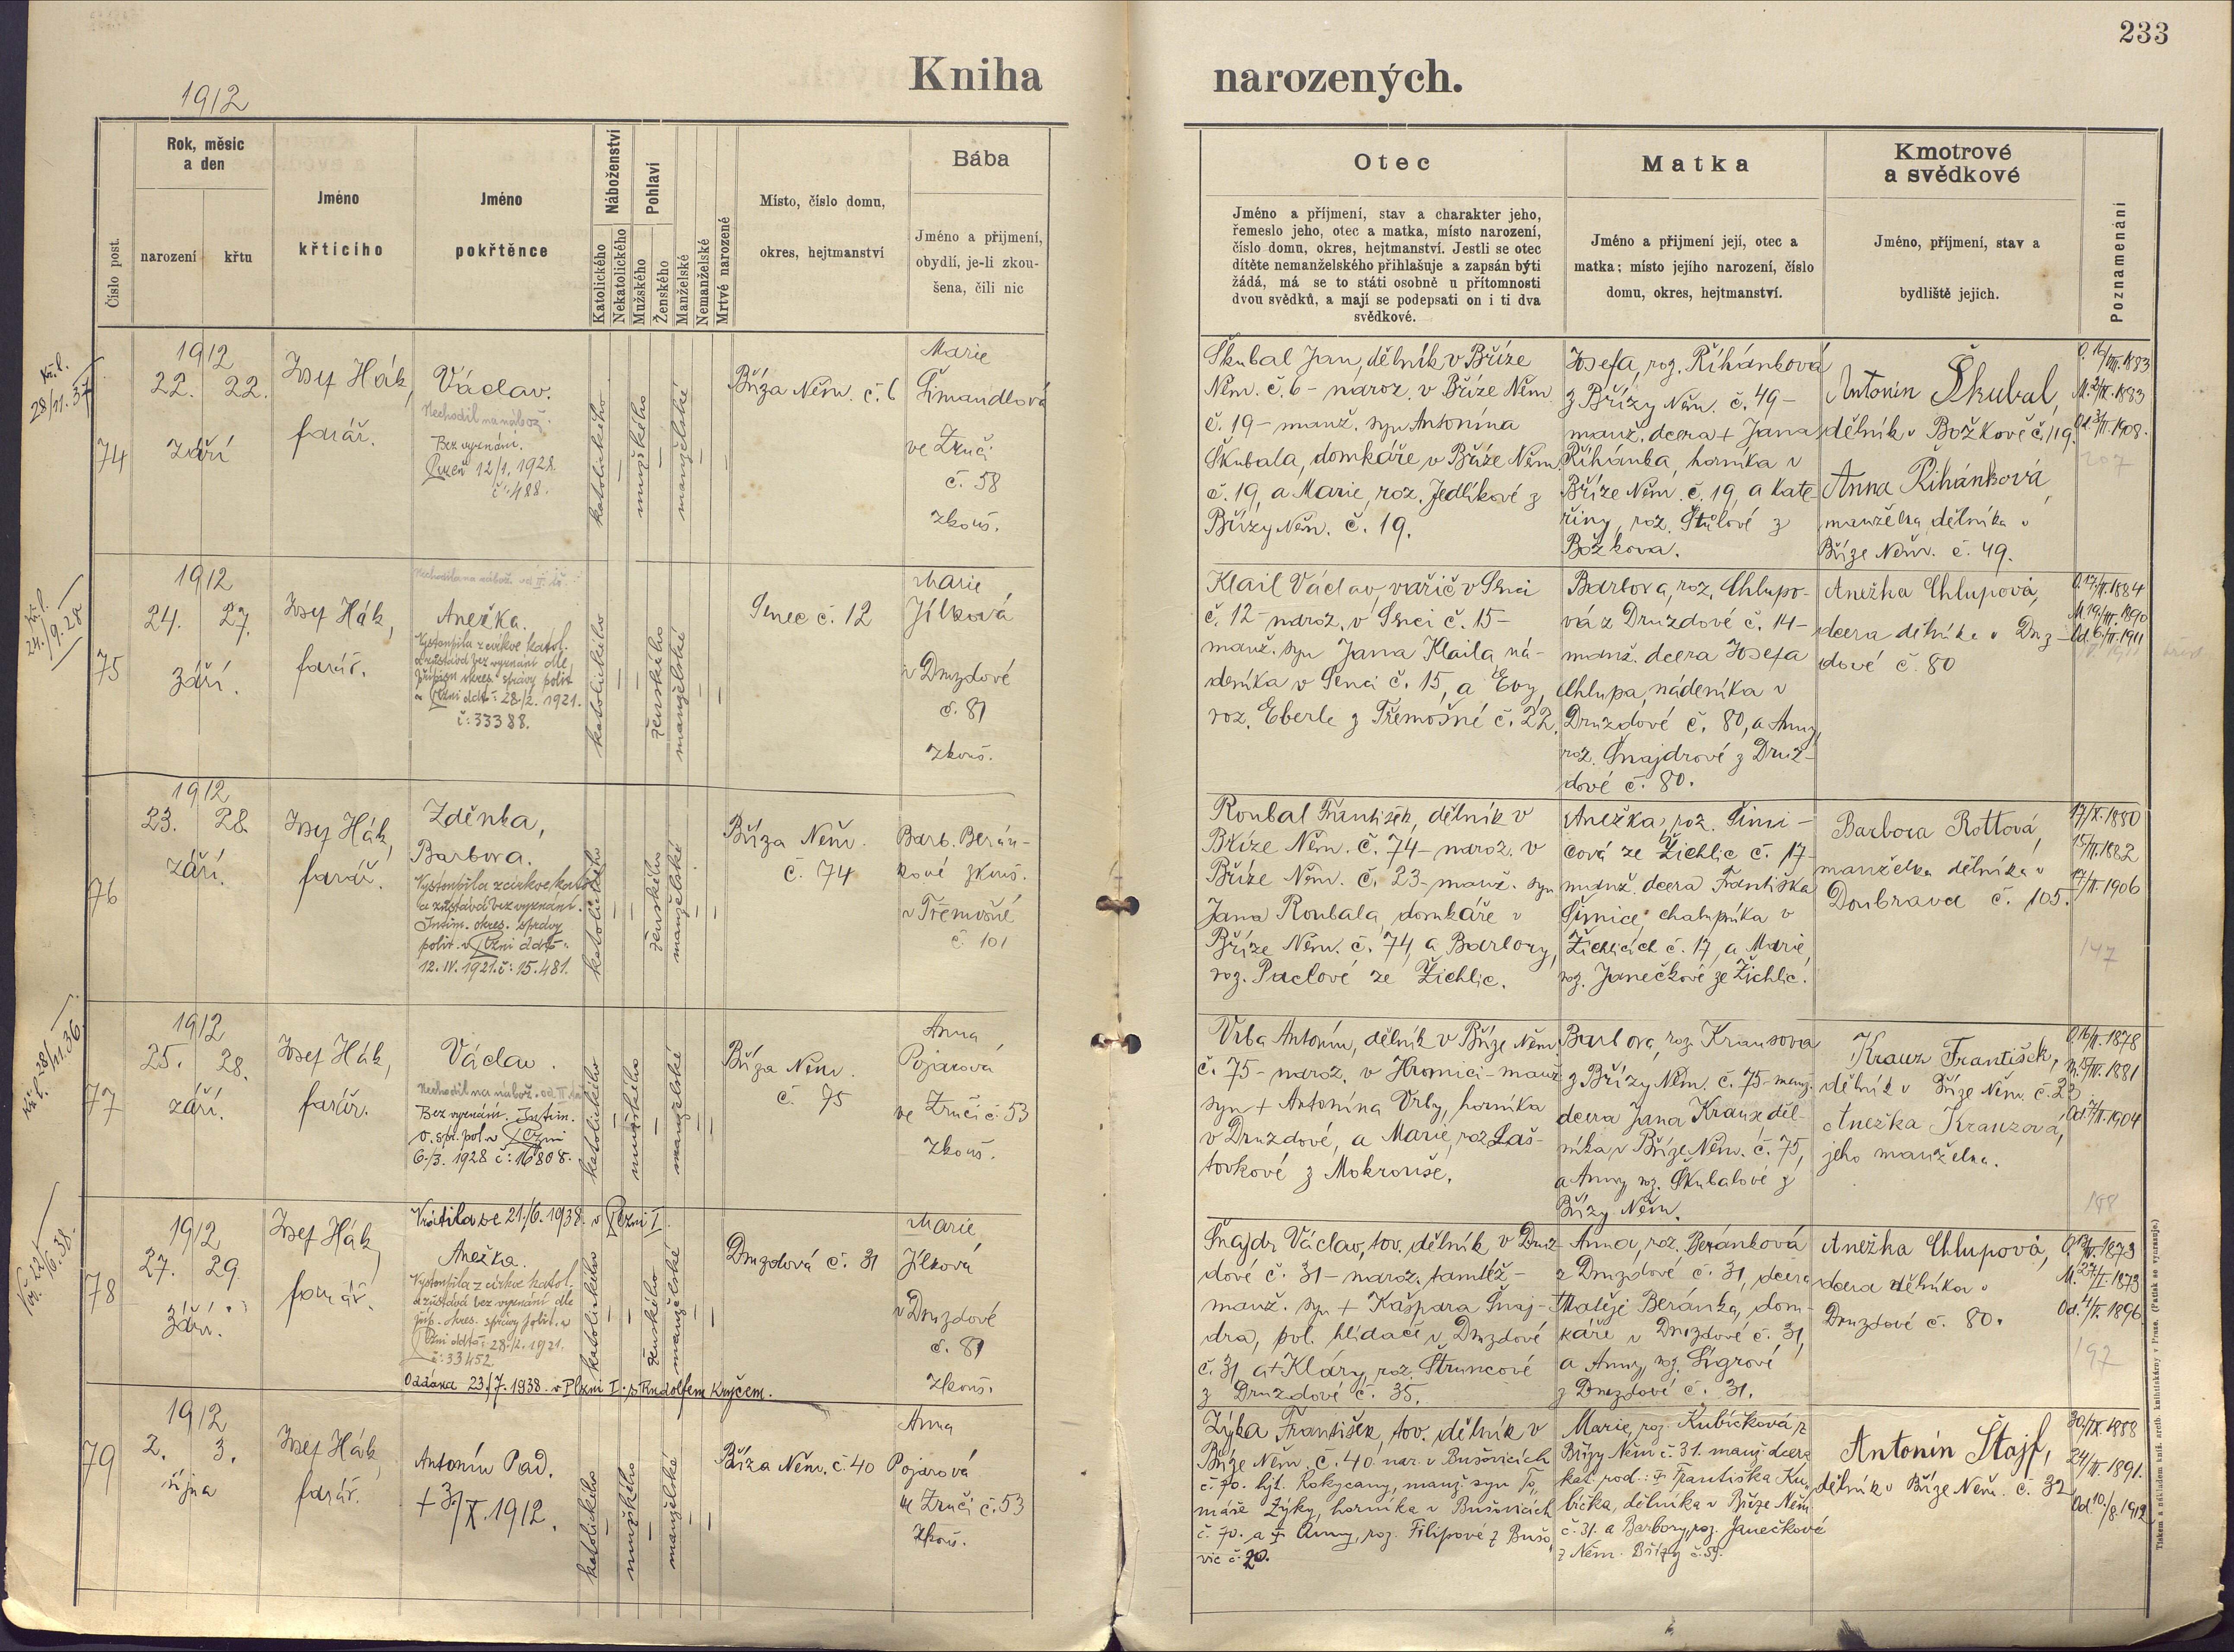 233
Kniha narozených.
1912
Číslo post.
Rok, měsíc
a den
narození
křtu
Jméno
křticího
Jméno
pokřtěnce
Náboženství
Katolického
Nekatolického
Pohlaví
Mužského
Ženského
Manželské
Nemanželské
Mrtvé narozené
Místo, číslo domu,
okres, hejtmanství
Bába
Jméno a přijmení,
obydlí, je-li zkou-
šena, čili nic
Otec
Jméno a příjmení, stav a charakter jeho,
řemeslo jeho, otec a matka, místo narození,
číslo domu, okres, hejtmanství. Jestli se otec
dítěte nemanželského přihlašuje a zapsán býti
žádá, má se to státi osobně u přítomnosti
dvou svědků, a mají se podepsati on i ti dva
svědkové.
Matka
Jméno a přijmení její, otec a
matka; místo jejího narození, číslo
domu, okres, hejtmanství.
Kmotrové
a svědkové
Jméno, příjmení, stav a
bydliště jejich.
Poznamenání
Kř. l.
28/11. 37
74
1912
22. 22.
září
Josef Hák,
farář.
Václav.
Nechodil na nábož.
Bez vyznání.
Plzeň 12/1. 1928.
č: 488.
katolického
mužského
manželské
Bříza Něm. č. 6
Marie
Šimandlová
ve Zruči
č. 58
zkouš.
Škubal Jan, dělník v Bříze
Něm. č. 6 - naroz. v Bříze Něm.
č. 19 - manž. syn Antonína
Škubala, domkáře v Bříze Něm.
č. 19, a Marie, roz. Jedlíkové z
Břízy Něm. č. 19.
Josefa, roz. Řihánková
z Břízy Něm. č. 49 -
manž. dcera + Jana
Řihánka, horníka v
Bříze Něm. č. 19, a Kate-
řiny, roz. Štúlové z
Božkova.
Antonín Škubal,
dělník v Božkově č. 119.
Anna Řihánková,
manželka dělníka v
Bříze Něm. č. 49.
M. 2/IX. 1883
Od. 3/II. 1908.
207
Kř. l.
24./9. 28
75
1912
24. 27.
září.
Josef Hák,
farář.
Anežka.
Vystoupila z církve katol.
a zůstává bez vyznání dle
přípisu okres. správy polit.
v Plzni ddto: 28./2. 1921.
č: 33388.
katolického
ženského
manželské
Senec č. 12
Marie
Jílková
v Druzdové
č. 81
zkouš.
Klail Václav, vařič v Senci
č. 12 - naroz. v Senci č. 15 -
manž. syn Jana Klaila, ná-
deníka v Senci č. 15, a Evy,
roz. Eberle z Třemošné č. 22.
Barbora, roz. Chlupo-
vá z Druzdové č. 14 -
manž. dcera Josefa
Chlupa, nádeníka v
Druzdové č. 80, a Anny,
roz. Šnajdrové z Druz-
dové č. 80.
Anežka Chlupová,
dcera dělníka v Druz-
dové č. 80
O. 17./II. 1884
M. 19./III. 1890
Od. 6./II. 1911
76
1912
23. 28.
září.
Josef Hák,
farář.
Zděnka,
Barbora.
Vystoupila z církve katol.
a zůstává bez vyznání.
Intim. okres. správy
polit. v Plzni ddto:
12. IV. 1921. č: 15.481.
katolického
ženského
manželské
Bříza Něm.
č. 74
Barb. Berán-
kové zkouš.
v Třemošné
č. 101
Roubal František, dělník v
Bříze Něm. č. 74 - naroz. v
Bříze Něm. č. 23 - manž. syn
Jana Roubala, domkáře v
Bříze Něm. č. 74, a Barbory,
roz. Paclové ze Žichlic.
Anežka, roz. Šimi-
cová ze Žichlic č. 17 -
manž. dcera Františka
Šimice, chalupníka v
Žichlicích č. 17, a Marie,
roz. Janečkové ze Žichlic.
Barbora Rottová,
manželka dělníka v
Doubravce č. 105.
17/X. 1880
15/II. 1882
17/II. 1906
147
Kř. l. 28/11. 36.
77
1912
25. 28.
září.
Josef Hák,
farář.
Václav.
Nechodil na nábož. od II. tř.
Bez vyznání. Intim.
o. spr. pol. v Plzni
6./3. 1928 č: 16808.
katolického
mužského
manželské
Bříza Něm.
č. 75
Anna
Pojarová
ve Zruči č. 53
zkouš.
Vrba Antonín, dělník v Bříze Něm.
č. 75 - naroz. v Hromici - manž.
syn + Antonína Vrby, horníka
v Druzdové, a Marie, roz. Laš-
tovkové z Mokrouše.
Barbora, roz. Krausová
z Břízy Něm. č. 75 - manž.
dcera Jana Krause, děl-
níka v Bříze Něm. č. 75,
a Anny, roz. Škubalové z
Břízy Něm.
Krauz František,
dělník v Bříze Něm. č. 23
Anežka Krauzová,
jeho manželka.
O. 16/II. 1878
Od. 7/II. 1904
188
78
1912
27. 29.
září.
Josef Hák,
farář.
Vrátila se 21./6. 1938. v Plzni I.
Anežka.
Vystoupila z církve katol.
a zůstává bez vyznání dle
příp. okres. správy polit. v
Plzni ddto: 28./2. 1921.
č: 33452
Oddána 23./7. 1938. v Plzni I. s Rudolfem Kryčem.
katolického
ženského
manželské
Druzdová č. 31
Marie
Jílková
v Druzdové
č. 81
zkouš.
Šnajdr Václav, tov. dělník v Druz-
dové č. 31 - naroz. tamtéž -
manž. syn + Kašpara Šnaj-
dra, pol. hlídače v Druzdové
č. 31, a + Kláry, roz. Štruncové
z Druzdové č. 35.
Anna, roz. Beránková
z Druzdové č. 31, dcera
Matěje Beránka, dom-
káře v Druzdové č. 31,
a Anny, roz. Sigrové
z Druzdové č. 31.
Anežka Chlupová,
dcera dělníka v
Druzdové č. 80.
M. 27/I. 1873
Od. 4/II. 1896
197
79
1912
2. 3.
října
Josef Hák,
farář.
Antonín Pad.
+ 3/X. 1912.
katolického
mužského
manželské
Bříza Něm. č. 40
Anna
Pojarová
ve Zruči č. 53
zkouš.
Zýka František, tov. dělník v
Bříze Něm. č. 40. nar. v Bušovicích
č. 70. hjt. Rokycany, manž. syn To-
máše Zýky, horníka v Bušovicích
č. 70. a + Anny, roz. Filipové z Bušo-
vic č. 20.
Marie, roz. Kubíčková, z
Břízy Něm č. 31. manž. dcera
kat. rod.: + Františka Ku-
bíčka, dělníka v Bříze Něm.
č. 31. a Barbory, roz. Janečkové
z Něm. Břízy č. 59.
Antonín Štajf,
dělník v Bříze Něm. č. 32
30/IX. 1888
24/III. 1891.
Od. 10./8. 1912